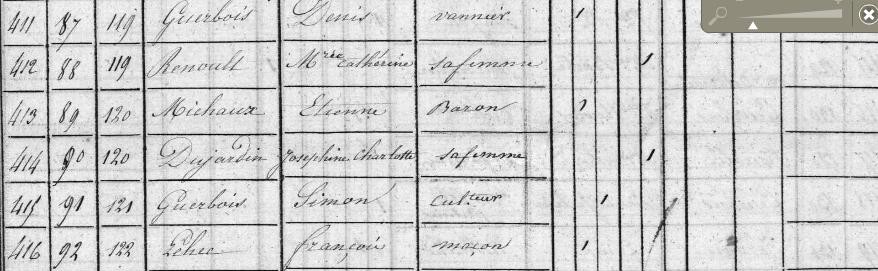 411 87 119 Guerbois Denis vannier 1
412 88 119 Renoult Mrie Cathérine sa femme 1
413 89 120 Michaux Etienne Baron 1
414 90 120 Dujardin Joséphine Charlotte sa femme 1
415 91 121 Guerbois Simon Culteur 1
416 92 122 françois maçon 1